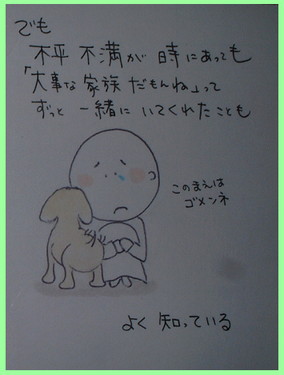 でも
不平不満が時にあっても
「大事な家族だもんね」って
ずっと一緒にいてくれたことも
このまえは
ゴメンネ
よく知っている